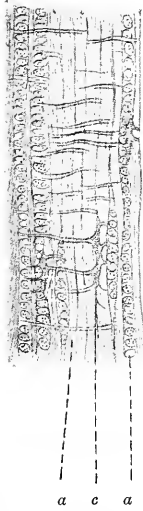 a c a